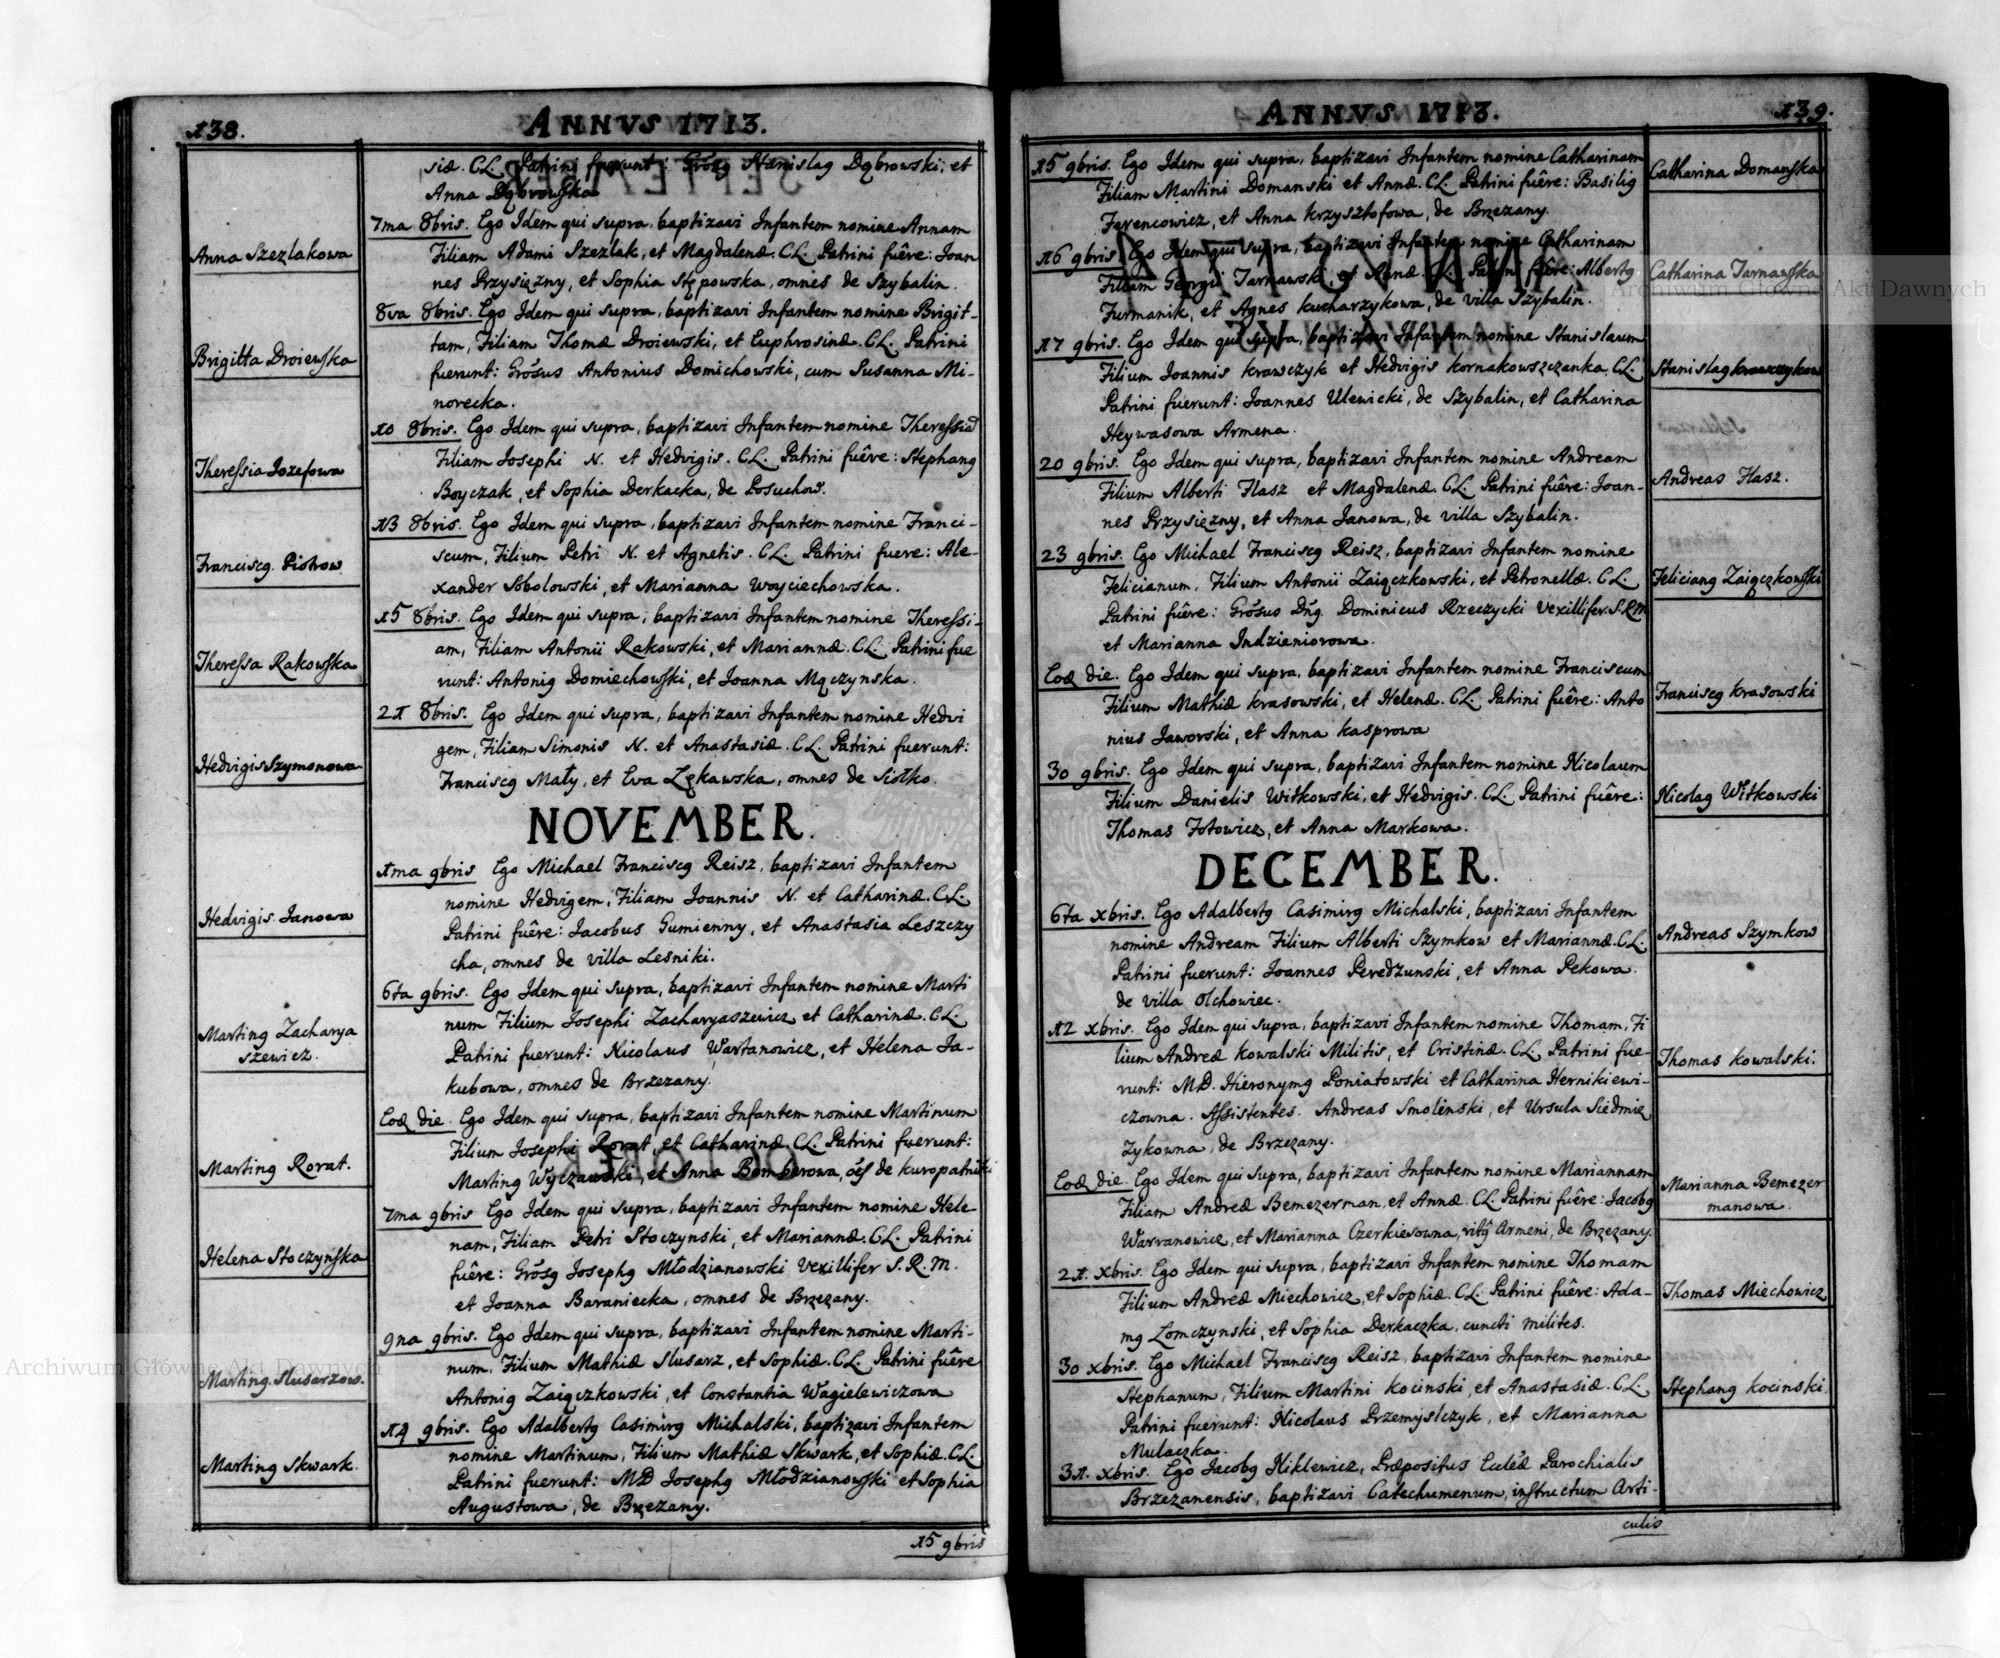 138.
ANNVS 1713.
siæ. CL. Patrini fuerunt: Grōsg Stanislag Dąbrowski, et
Anna Dąbrowska
7ma 8bris. Ego Idem qui supra, baptizavi Infantem nomine Annam
Anna Szezlakowa
Filiam Adami Szezlak, et Magdalenæ. CL. Patrini fuêre: Joan
nes Przysiężny, et Sophia Stępowska, omnes de Szybalin.
8va 8bris. Ego Idem qui supra, baptizavi Infantem nomine Brigit-
Brigitta Droiewska
tam, Filiam Thomæ Droiewski, et Euphrosinæ. CL. Patrini
fuerunt: Grōsus Antonius Domichowski, cum Susanna Mi-
norecka.
10 8bris. Ego Idem qui supra, baptizavi Infantem nomine Theressiā
Theressia Iozefowa
Filiam Iosephi N. et Hedvigis. CL. Patrini fuêre: Stephang
Boyczak, et Sophia Derkacka, de Posuchow.
13 8bris. Ego Idem qui supra, baptizavi Infantem nomine Franci-
Franciscg. Piotrow
scum, Filium Petri N. et Agnetis. CL. Patrini fuere: Ale-
xander Sobolowski, et Marianna Woyciechowska.
15 8bris. Ego Idem qui supra, baptizavi Infantem nomine Theressi-
Theressa Rakowska
am, Filiam Antonii Rakowski, et Mariannæ. CL. Patrini fue
runt: Antonig Domiechowski, et Joanna Mączynska.
21 8bris. Ego Idem qui supra, baptizavi Infantem nomine Hedvi
Hedvigis Szymonowa
gem, Filiam Simonis N. et Anastasiæ. CL. Patrini fuerunt:
Franciscg Mały, et Eva Łękawska, omnes de Siołko.
NOVEMBER.
1ma 9bris Ego Michael Franciscg Reisz, baptizavi Infantem
Hedvigis Janowa
nomine Hedvigem, Filiam Joannis N. et Catharinæ. CL.
Patrini fuêre: Jacobus Gumienny, et Anastasia Leszczy
cha, omnes de villa Lesniki.
6ta 9bris. Ego Idem qui supra, baptizavi Infantem nomine Marti
Marting Zacharya
szewicz.
num Filium Josephi Zacharyaszewicz et Catharinæ. CL.
Patrini fuerunt: Nicolaus Wartanowicz, et Helena Ja-
kubowa, omnes de Brzezany.
Eoæ die. Ego Idem qui supra, baptizavi Infantem nomine Martinum
Marting Rorat.
Filium Josephi Rorat, et Catharinæ. CL. Patrini fuerunt:
Marting Wyczawski, et Anna Bemberowa, oēs de kuropatniki
7ma 9bris Ego Idem qui supra, baptizavi Infantem nomine Hele-
Helena Stoczyńska
nam, Filiam Petri Stoczynski, et Mariannæ. CL. Patrini
fuêre: Grōsg Josephg Młodzianowski Vexillifer S. R. M.
et Joanna Baraniecka, omnes de Brzezany.
9na 9bris. Ego Idem qui supra, baptizavi Infantem nomine Marti-
Marting. Slusarzow.
num, Filium Mathiæ Slusarz, et Sophiæ. CL. Patrini fuêre
Antonig Zaiączkowski, et Constantia Wagielewiczowa
14 9bris. Ego Adalbertg Casimirg Michalski, baptizavi Infantem
Marting Skwark.
nomine Martinum, Filium Mathiæ Skwark, et Sophiæ. CL.
Patrini fuerunt: MD Josephg Młodzianowski et Sophia
Augustowa, de Brzezany.
15 9bris
139.
ANNVS 1713.
15 9bris. Ego Idem qui supra, baptizavi Infantem nomine Catharinam
Catharina Domanska
Filiam Martini Domanski et Annæ. CL. Patrini fuêre: Basilig
Ferencowicz, et Anna krzysztofowa, de Brzezany.
16 9bris Ego Idem qui supra, baptizavi Infantem nomine Catharinam
Catharina Tarnawska
Filiam Georgii Tarnawski, et Annæ. CL. Patrini fuêre: Albertg
Furmanik, et Agnes kucharzykowa, de villa Szybalin.
17 9bris. Ego Idem qui supra, baptizavi Infantem nomine Stanislaum
Stanislag krawczykow
Filium Joannis krawczyk et Hedvigis kornakowszczanka. CL.
Patrini fuerunt: Joannes Ulewicki, de Szybalin, et Catharina
Heywasowa Armena.
20 9bris. Ego Idem qui supra, baptizavi Infantem nomine Andream
Andreas Hasz.
Filium Alberti Hasz et Magdalenæ. CL. Patrini fuêre: Joan-
nes Przysiężny, et Anna Janowa, de villa Szybalin.
23 9bris. Ego Michael Franciscg Reisz, baptizavi Infantem nomine
Feliciang Zaiączkowski
Felicianum, Filium Antonii Zaiączkowski, et Petronellæ. CL.
Patrini fuêre: Grōsus Dn̄g. Dominicus Rzeczycki Vexillifer. S.R.M
et Marianna Indzieniorowa.
Eoæ die. Ego Idem qui supra, baptizavi Infantem nomine Franciscum
Franciscg krasowski
Filium Mathiæ krasowski, et Helenæ. CL. Patrini fuêre: Anto
nius Jaworski, et Anna kasprowa
30 9bris. Ego Idem qui supra, baptizavi Infantem nomine Nicolaum
Nicolag Witkowski
Filium Danielis Witkowski, et Hedvigis. CL. Patrini fuêre:
Thomas Fotowicz, et Anna Markowa.
DECEMBER.
6ta xbris. Ego Adalbertg Casimirg Michalski, baptizavi Infantem
Andreas Szymkow
nomine Andream Filium Alberti Szymkow et Mariannæ. CL.
Patrini fuerunt: Joannes Peredzunski, et Anna Pekowa.
de villa Olchowiec.
12 xbris. Ego Idem qui supra, baptizavi Infantem nomine Thomam, Fi
Thomas kowalski.
lium Andreæ kowalski Militis, et Cristinæ. CL. Patrini fue-
runt: MD. Hieronymg Poniatowski et Catharina Hernikiewi-
czowna. Assistentes. Andreas Smolenski, et Ursula Siedmie
Zykowna, de Brzezany.
Eoæ die. Ego Idem qui supra, baptizavi Infantem nomine Mariannam
Marianna Bemezer
manowa.
Filiam Andreæ Bemezerman, et Annæ. CL. Patrini fuêre: Jacobg
Warvanowicz, et Marianna Czerkiesowna, ritg Armeni, de Brzezany.
21. xbris. Ego Idem qui supra, baptizavi Infantem nomine Thomam
Thomas Miechowicz
Filium Andreæ Miechowicz, et Sophiæ. CL. Patrini fuêre: Ada-
mg Lomczynski, et Sophia Derkaczka, cuncti milites.
30 xbris. Ego Michael Franciscg Reisz, baptizavi Infantem nomine
Stephang kocinski.
Stephanum, Filium Martini kocinski, et Anastasiæ. CL.
Patrini fuerunt: Nicolaus Przemyslczyk, et Marianna
Mulaczka.
31. xbris. Ego Jacobg Niklewicz, Præpositus Eccl̄æ Parochialis
Brzezanensis, baptizavi Catechumenum, instructum Arti-
culis
Archiwum Główne Akt Dawnych
Archiwum Główne Akt Dawnych